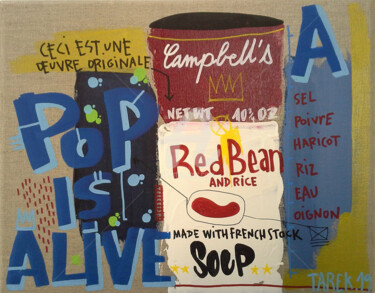 CECI EST. UNE
ŒUVRE ORIGINALE
Campbell's
NET WT 10½ OZ
Red Bean
AND RICE
MADE WITH FRENCH STOCK
SOUP
POP
IS
ALIVE
A
SEL
POIVRE
HARICOT
RIZ
EAU
OIGNON
TAREK 19